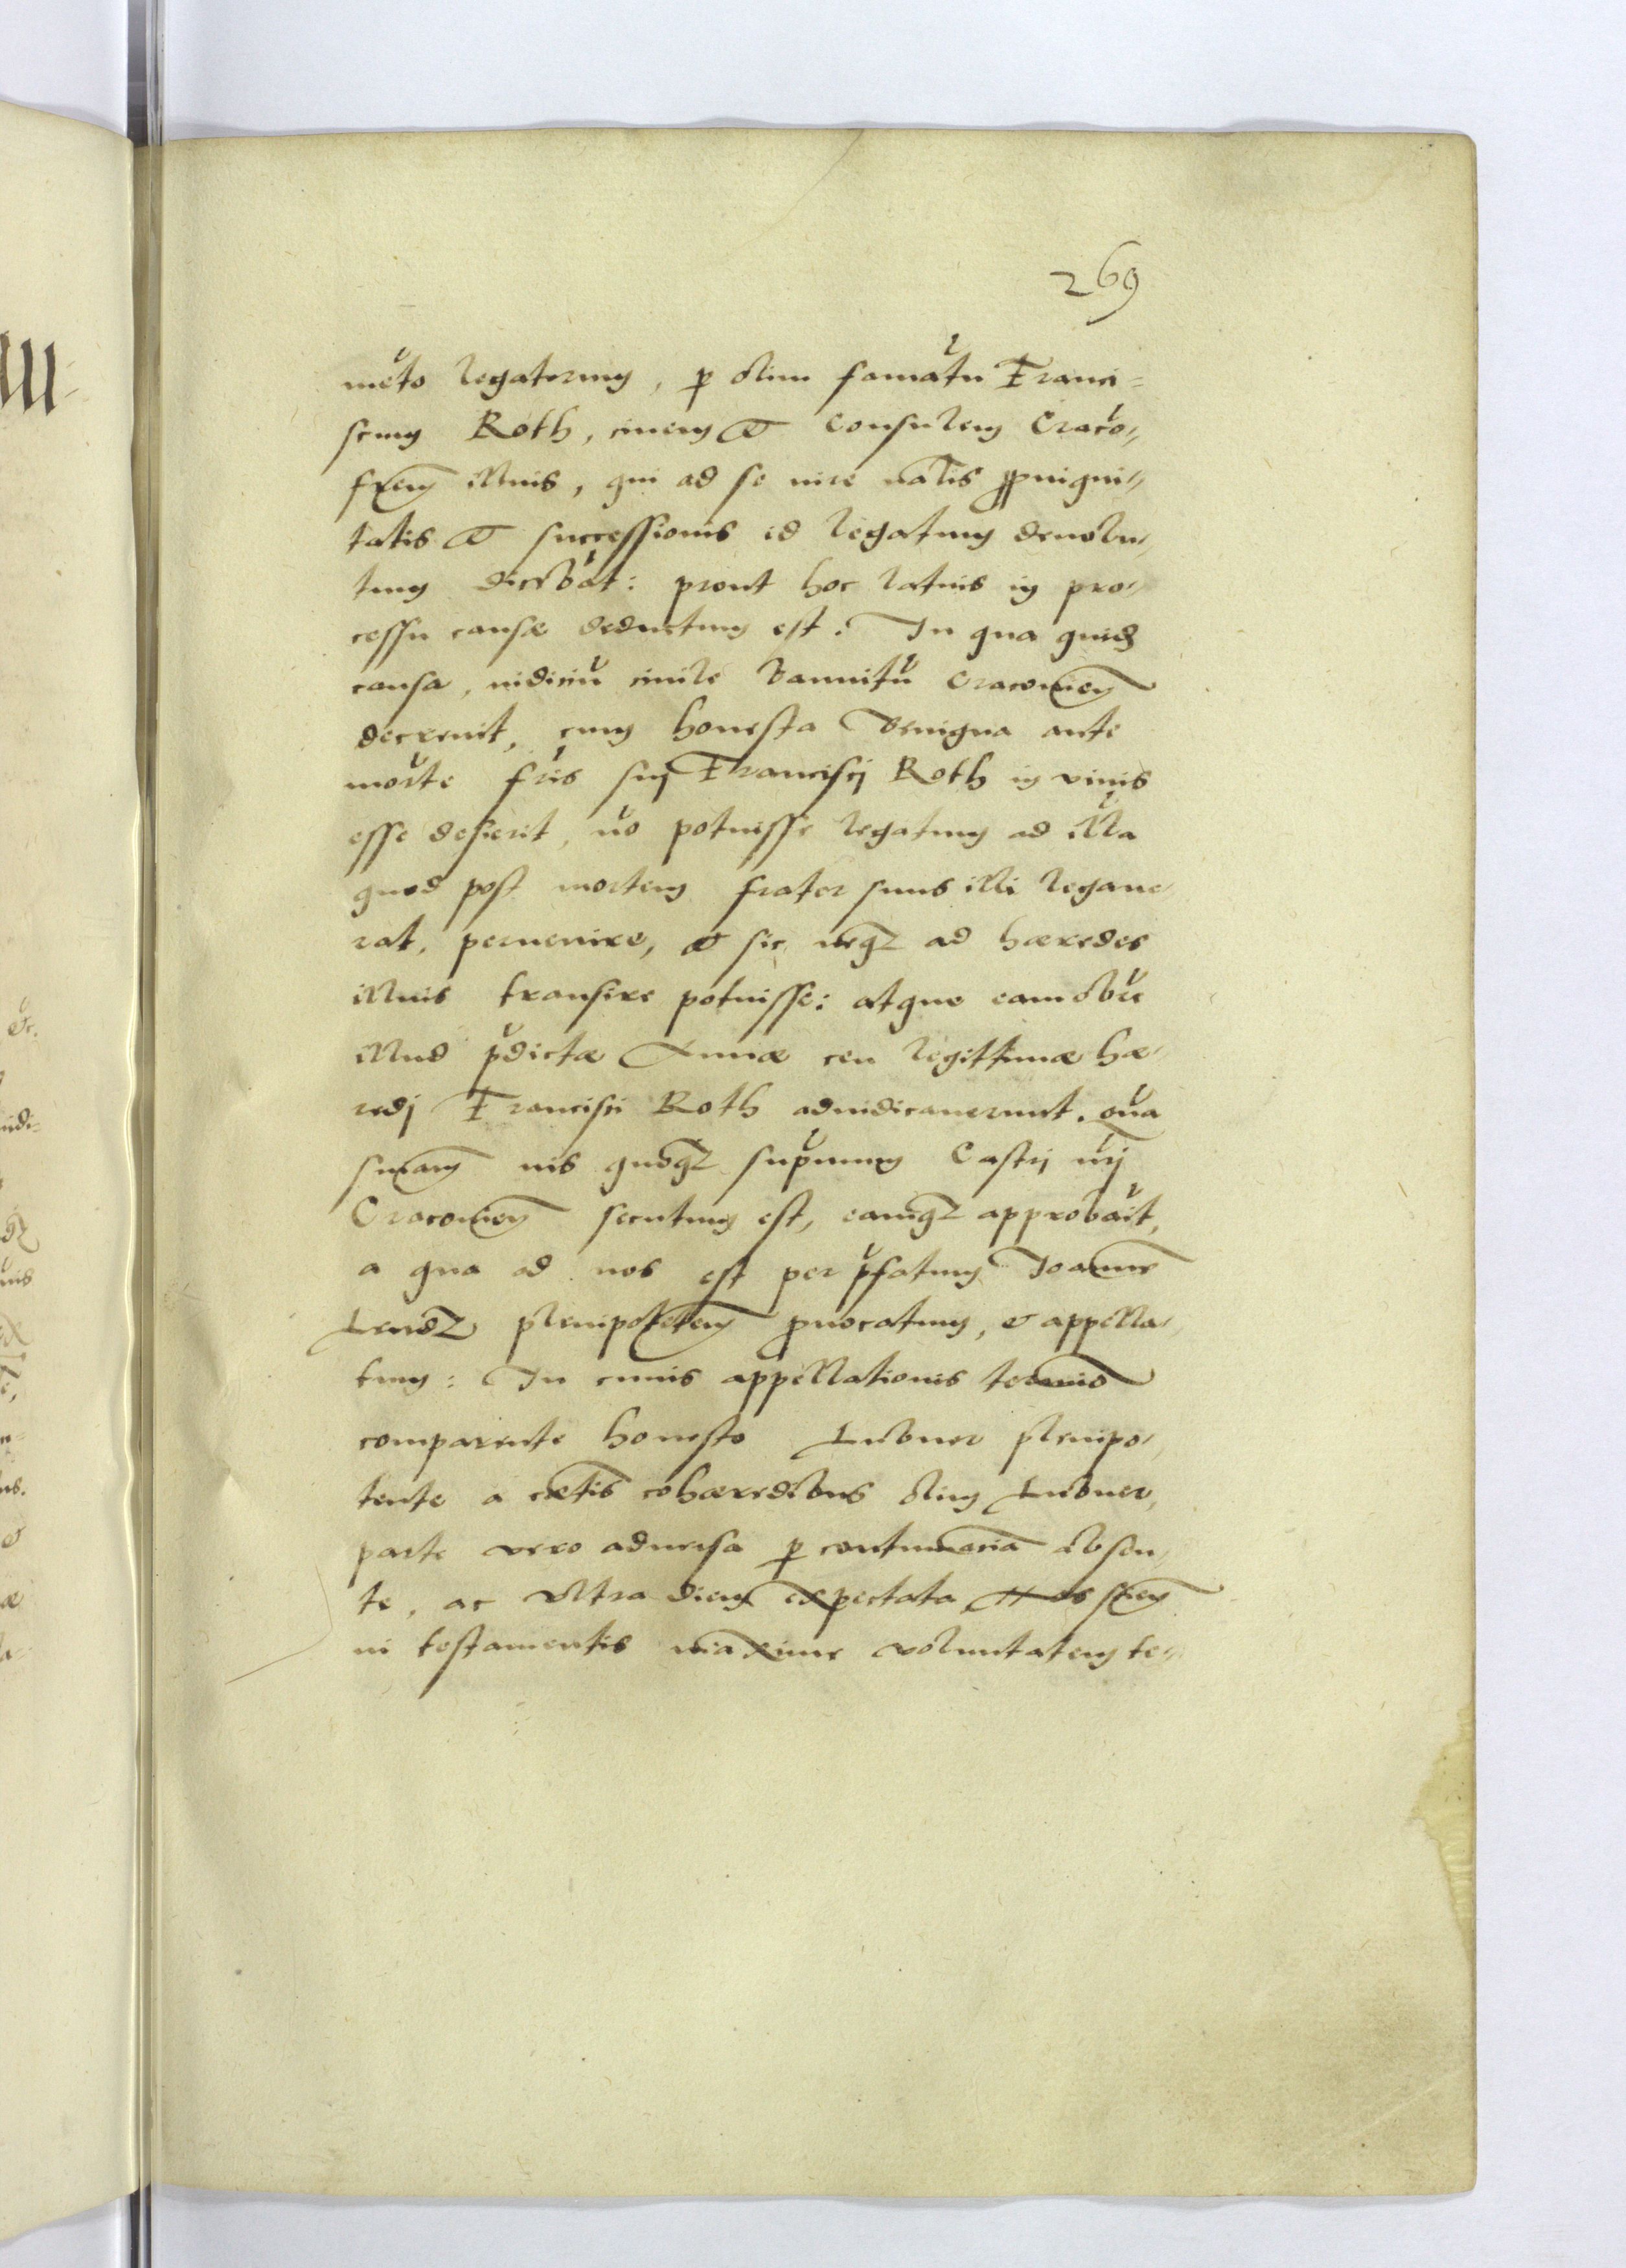 269
meto legatorum, p olim famatu Franci=
scum Roth, civem & Consulem Craco=
sem illius, qui ad se iure natis propinqui=
tatis & successionis id legatum devolu=
tum dicebat: prout hoc latius in pro=
cessu causæ deductum est. In qua quidem
causa, iudiciu civile bannitu Cracovien
decrevit, cum honesta Benigna ante
morte fris sui Francisci Roth in vivis
esse desierit, no potuisse legatum ad illa
quod post mortem frater suus illi legave=
rat, pervenire, & sic neqz ad hæredes
illius transire potuisse: atque eamobre
illud pdictæ Annæ ceu legittimæ hæ=
redi Francisci Roth adiudicaverunt. qua
sniam ius quoqz supmum Castri nri
Cracovien secutum est, eamqz approbavit,
a qua ad nos est per pfatum Joanne
plenipotetem provocatum, & appella=
tum: In cuius appellationis termino
comparente honesto Lubner plenipo=
tente a cætis cohæredibus olim Lubner,
parte vero adversa p contumacia absen=
te, ac ultra diem expectata, Nos
in testamentis maxime voluntatem te=